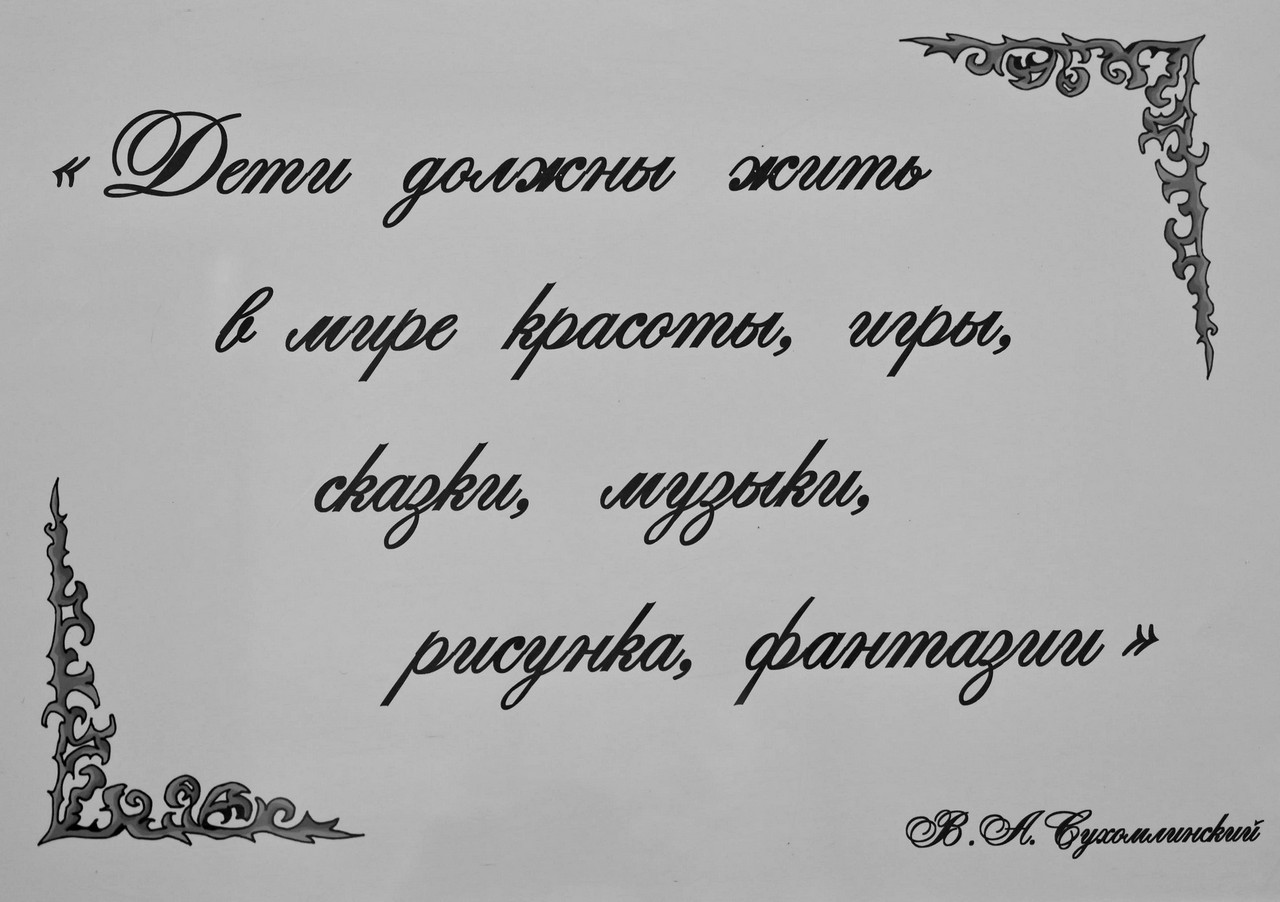 « Дети должны жить
в мире красоты, игры,
сказки, музыки,
рисунка, фантазии »
В. А. Сухомлинский